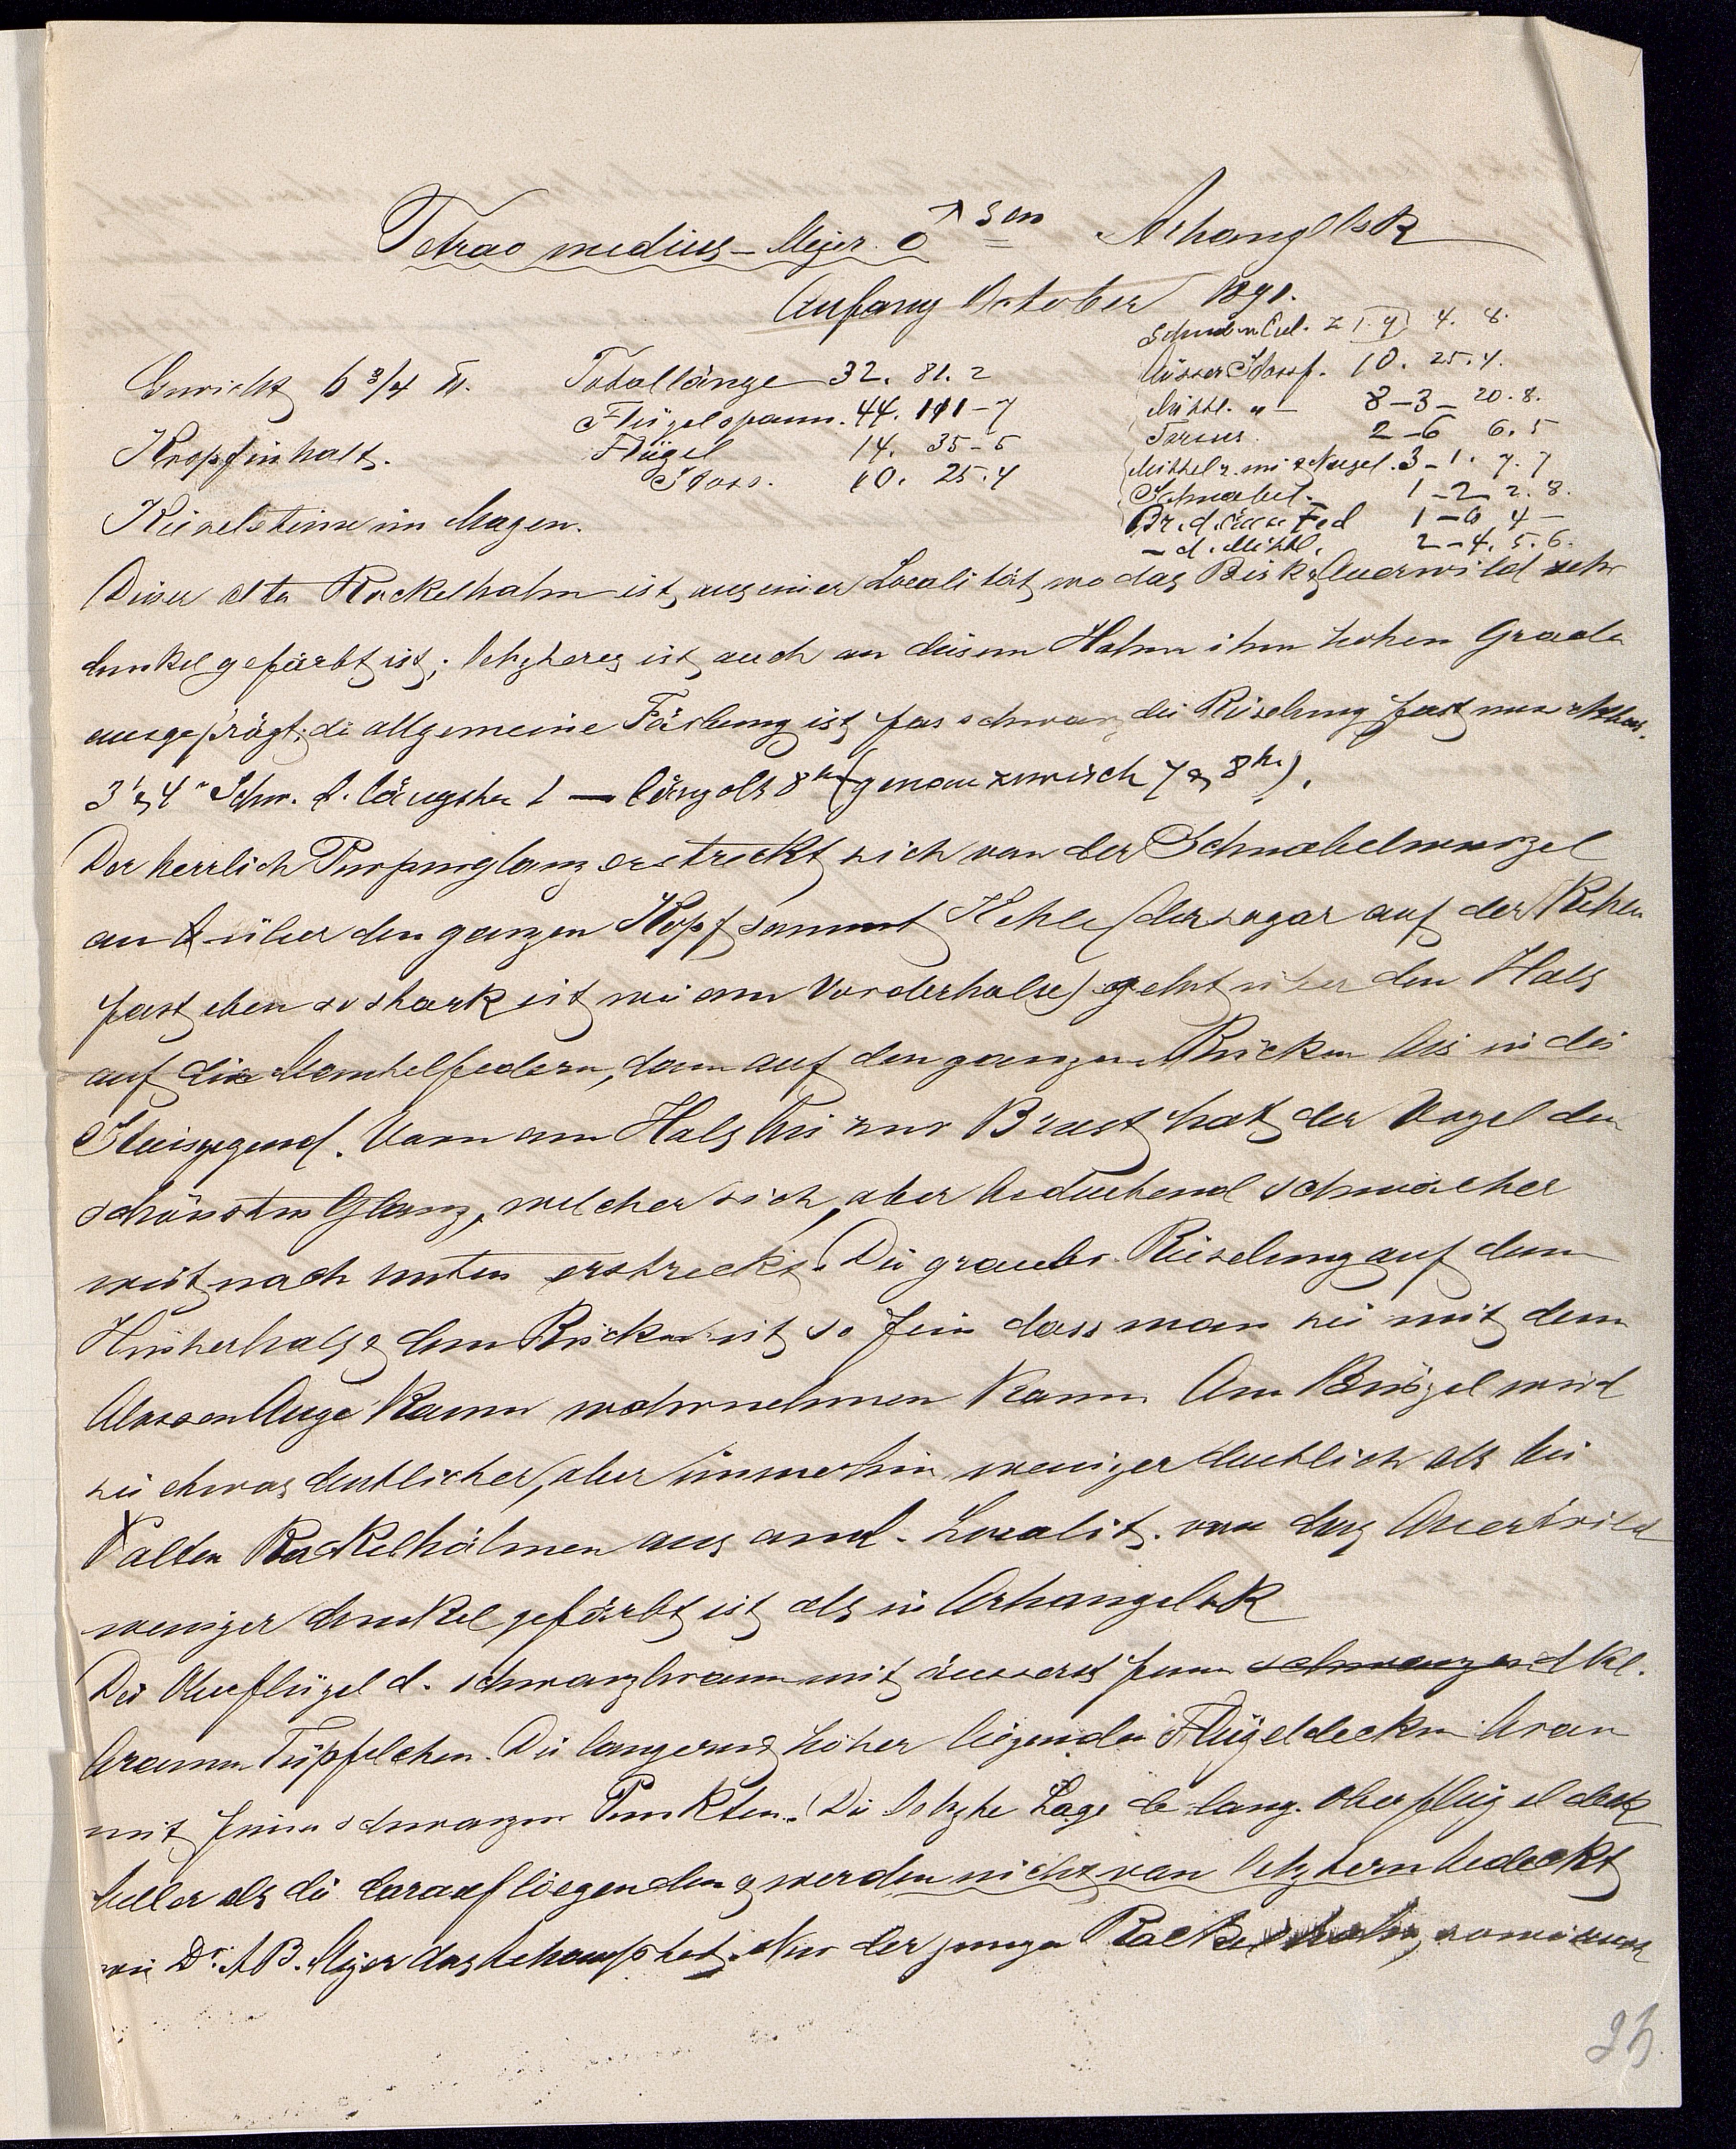 Tetrao medius – Meyer. ♂ sen Arhangelsk
Anfang October 1891.
Gewicht 6 3/4 ℔. Totallänge 32. 81.2
Flügelspann. 44. 111–7
Kropfinhalt. Flügel 14. 35–5
Stoss. 10. 25.4
Kieselsteine im Magen.
Äusser Stossf. 10. 25.4.
Mittl. „ – 8–3– 20.8.
Tarsus. 2–6 6.5
Mittelz. mit Nagel. 3–1. 7.7
Schnabel. 1–2 2.8.
Br. d. äuss Fed 1–6 4–
– d. Mittl. 2–4. 5.6.
Dieser alte Rackelhahn ist aus einer Localität wo das Birk & Auerwild sehr
dunkel gefärbt ist; letzteres ist auch an diesem Hahn ihm hohen Grade
ausgeprägt; die allgemeine Färbung ist fas schwarz die Rieselung fast
3' & 4" Schw. d. längste 2 — läng als 8te (genau zwisch 7 & 8te).
Der herrlich Purpurglanz erstreckt sich von der Schnabelwurzel
an über den ganzen Kopf sammt Kehle (der sogar auf der Kehle
fast eben so stark ist wie am Vorderhalse) geht über den Hals
auf die Mantelfedern, dann auf den ganzen Rücken bis in die
Steisgegend. Vorn am Hals bis zur Brust hat der Vogel den
schönsten Glanz, welcher sich, aber bedeutend schwächer
weit nach unten erstreckt. Die graubr. Rieselung auf dem
Hinterhals & dem Rücken ist so fein dass man sie mit dem
blossen Auge kaum wahrnehmen kann. Am Bürzel wird
sie etwas deutlicher, aber immerhin weniger deutlich als bei
alten Rackelhähnen aus and. Localit. von das Auerwild
weniger dunkel gefärbt ist als in Arhangelsk
Die Oberflügel d. schwarzbraun mit äusserst feinen schwarzen dkl.
braunen Tüpfelchen. Die langern & höher liegenden Flügeldecken braun
mit feinen schwarzen Punkten. Die letzte Lage de lang. Oberflügeldeck
heller als die darauf liegenden & werden nicht von letztern bedeckt
wie Dr. A B. Meyer das behauptet. Nur der junge Rackelhahn, sowie